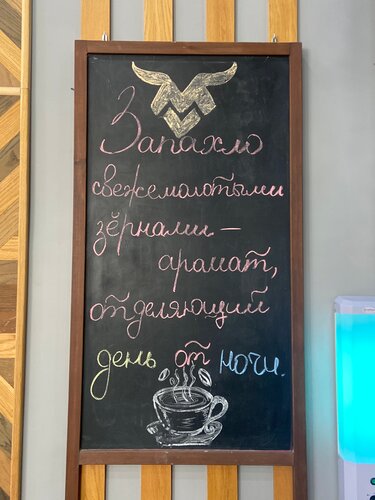 Запахло
свежемолотыми
зёрнами —
арамат,
отделяющий
день от ночи.